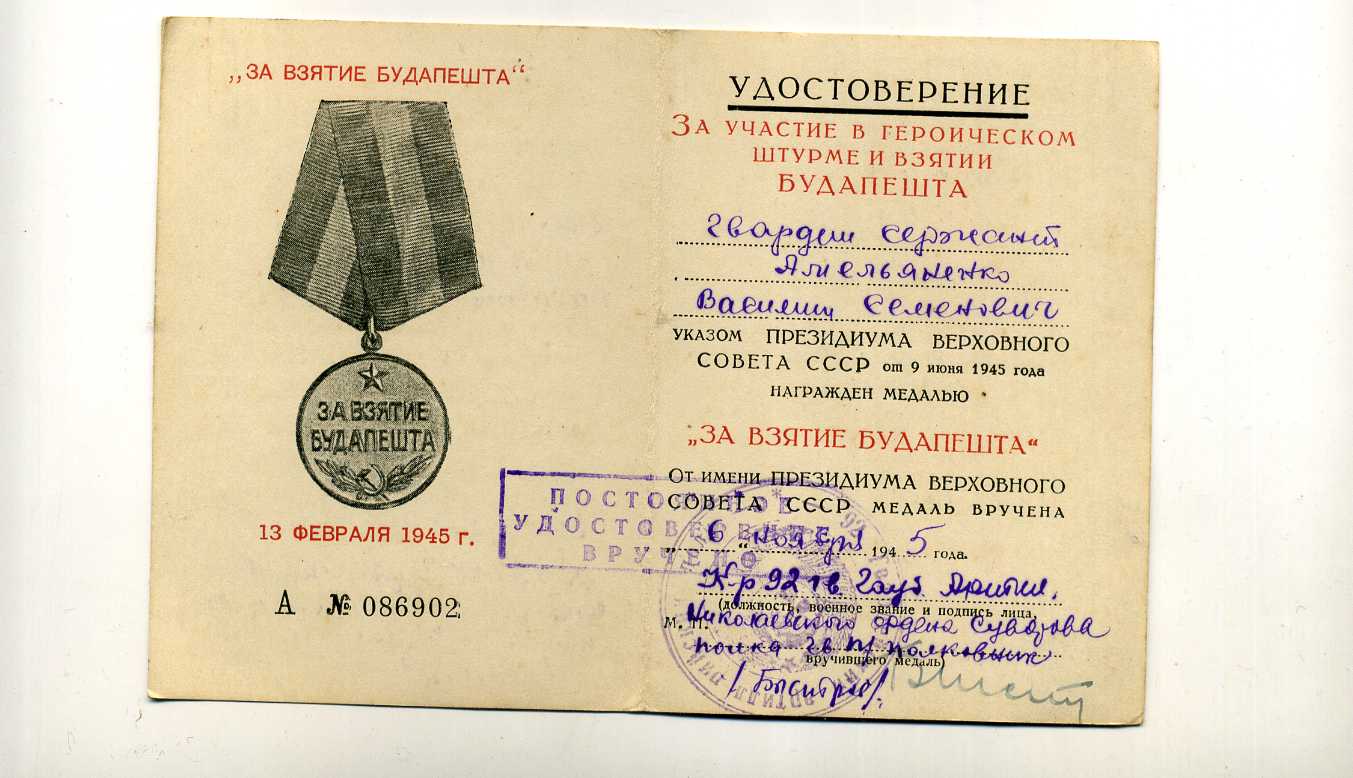 „ЗА ВЗЯТИЕ БУДАПЕШТА“
ЗА ВЗЯТИЕ
БУДАПЕШТА
13 ФЕВРАЛЯ 1945 г.
А № 086902
УДОСТОВЕРЕНИЕ
ЗА УЧАСТИЕ В ГЕРОИЧЕСКОМ
ШТУРМЕ И ВЗЯТИИ
БУДАПЕШТА
Гвардии сержант
Амельяненко
Василий Семенович
УКАЗОМ ПРЕЗИДИУМА ВЕРХОВНОГО
СОВЕТА СССР от 9 июня 1945 года
НАГРАЖДЕН МЕДАЛЬЮ
„ЗА ВЗЯТИЕ БУДАПЕШТА“
От имени ПРЕЗИДИУМА ВЕРХОВНОГО
СОВЕТА СССР МЕДАЛЬ ВРУЧЕНА
„6“ ноября 1945 года.
К-р 92 гв Гауб Артил.
(должность, военное звание и подпись лица,
М. П. Николаевского ордена Суворова
полка гв полковник
вручившего медаль)
/Быстров/
ПОСТОЯННОЕ
УДОСТОВЕРЕНИЕ
ВРУЧЕНО